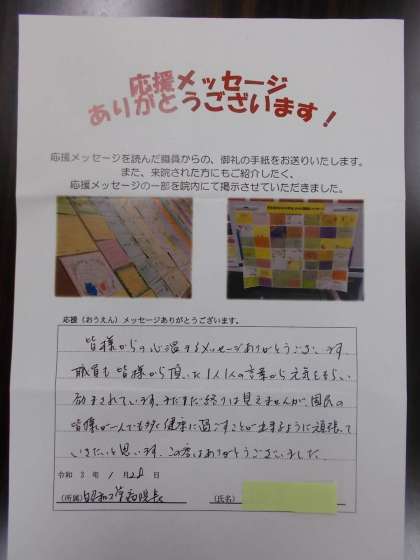 応援メッセージ
ありがとうございます！
応援メッセージを読んだ職員からの、御礼の手紙をお送りいたします。
また、来院された方にもご紹介したく、
応援メッセージの一部を院内にて掲示させていただきました。
応援（おうえん）メッセージありがとうございます。
皆様からの心温まるメッセージありがとうございます。
職員も皆様から頂いた1人1人の言葉から元気をもらい、
励まされています。まだまだ終りは見えませんが、国民の
皆様が一人でも多く健康に過ごすことが出来るように頑張って
いきたいと思います。この度はありがとうございました。
令和 3 年 1 月 28 日
（所属）
（氏名）